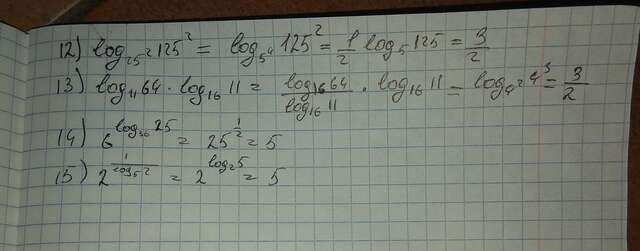 12) log₂₅² 125² = log₅⁴ 125² = 1/2 log₅ 125 = 3/2
13) log₁₁ 64 · log₁₆ 11 = log₁₆ 64 / log₁₆ 11 · log₁₆ 11 = log₄² 4³ = 3/2
14) 6^log₃₆ 25 = 25^1/2 = 5
15) 2^1/log₅ 2 = 2^log₂ 5 = 5